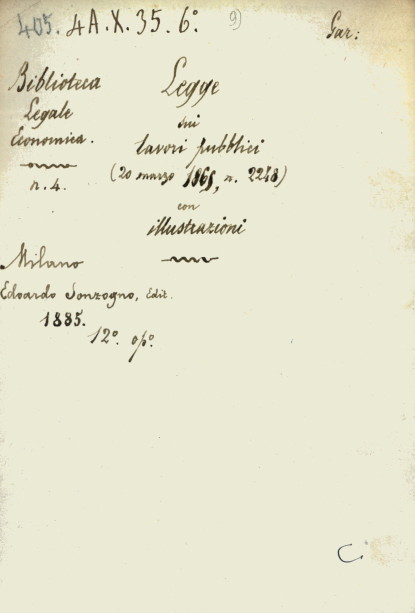 405. 4A.X.35.6° 9)
Gar:
Biblioteca
Legale
Economica.
n. 4.
Legge
sui
lavori pubblici
(20 marzo 1865, n. 2248)
con
illustrazioni
Milano
Edoardo Sonzogno, Edit.
1885.
12°. op°.
C